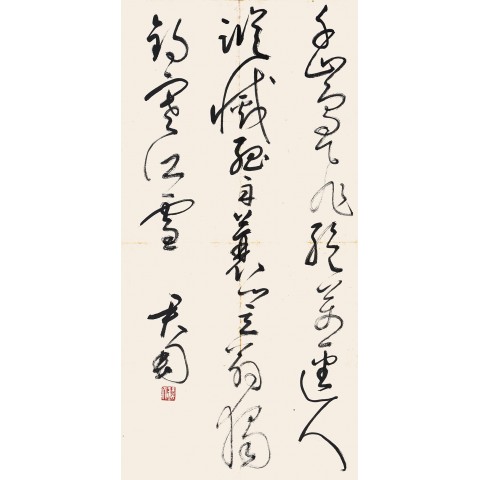 千山鳥飛絕萬徑人
蹤滅孤舟蓑笠翁獨
釣寒江雪 君匋